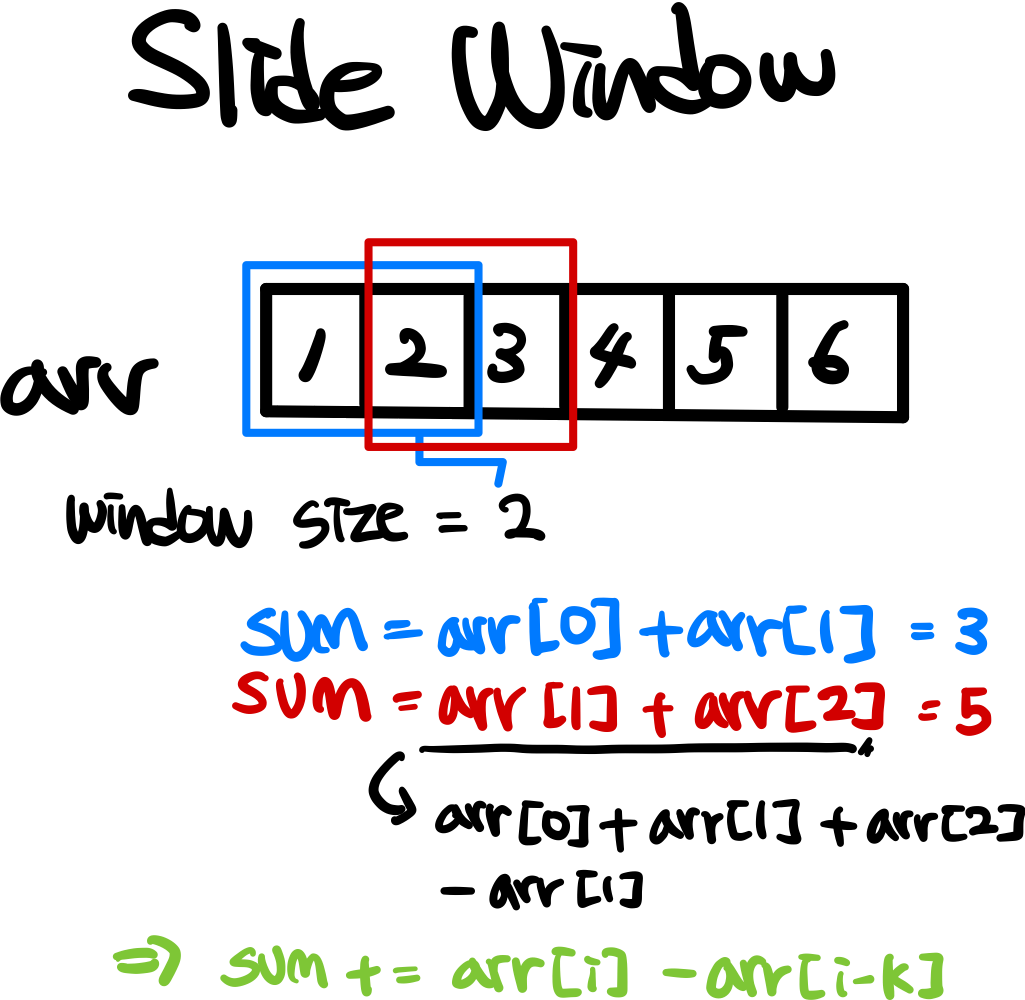 Slide Window
arr 1 2 3 4 5 6
window size = 2
sum = arr[0] + arr[1] = 3
sum = arr[1] + arr[2] = 5
arr[0] + arr[1] + arr[2]
- arr[1]
⇒ sum += arr[i] - arr[i-k]